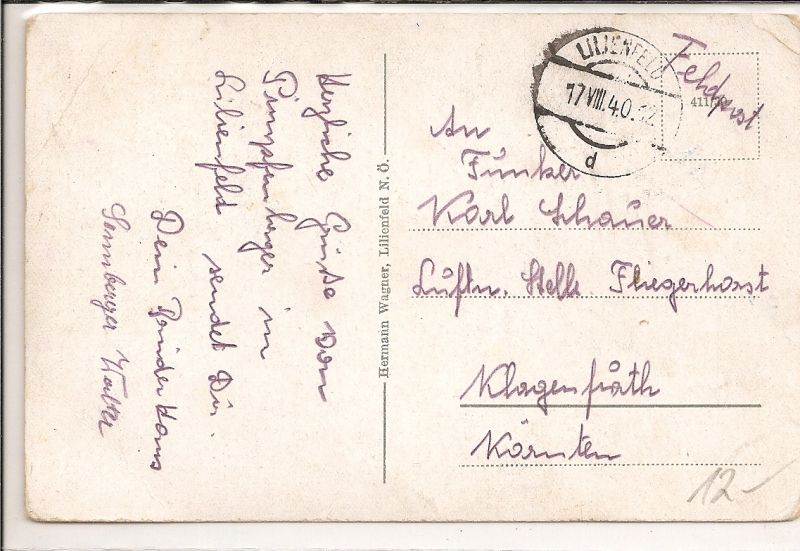 Herzliche Grüße vom
Pimpfenlager in
Lilienfeld sendet Dir.
Dein Bruder Hans
Walter
Hermann Wagner, Lilienfeld N. Ö.
LILIENFELD
17.VIII.40.12
d
Feldpost
411/
An
Funker
Karl Schauer
Luftn. Stelle Fliegerhorst
Klagenfurth
Kärnten
12-